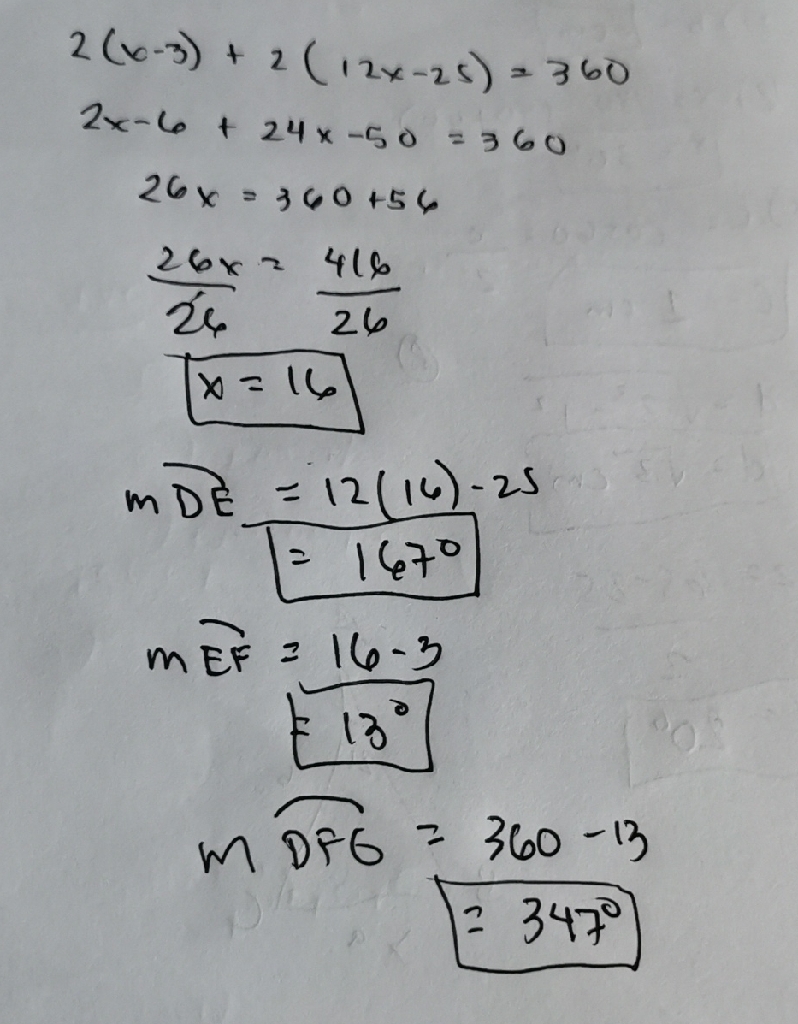 2(x-3) + 2(12x-25) = 360
2x-6 + 24x-50 = 360
26x = 360+56
26x = 416
26 26
x = 16
m DE = 12(16)-25
= 167°
m EF = 16-3
= 13°
m DFG = 360-13
= 347°